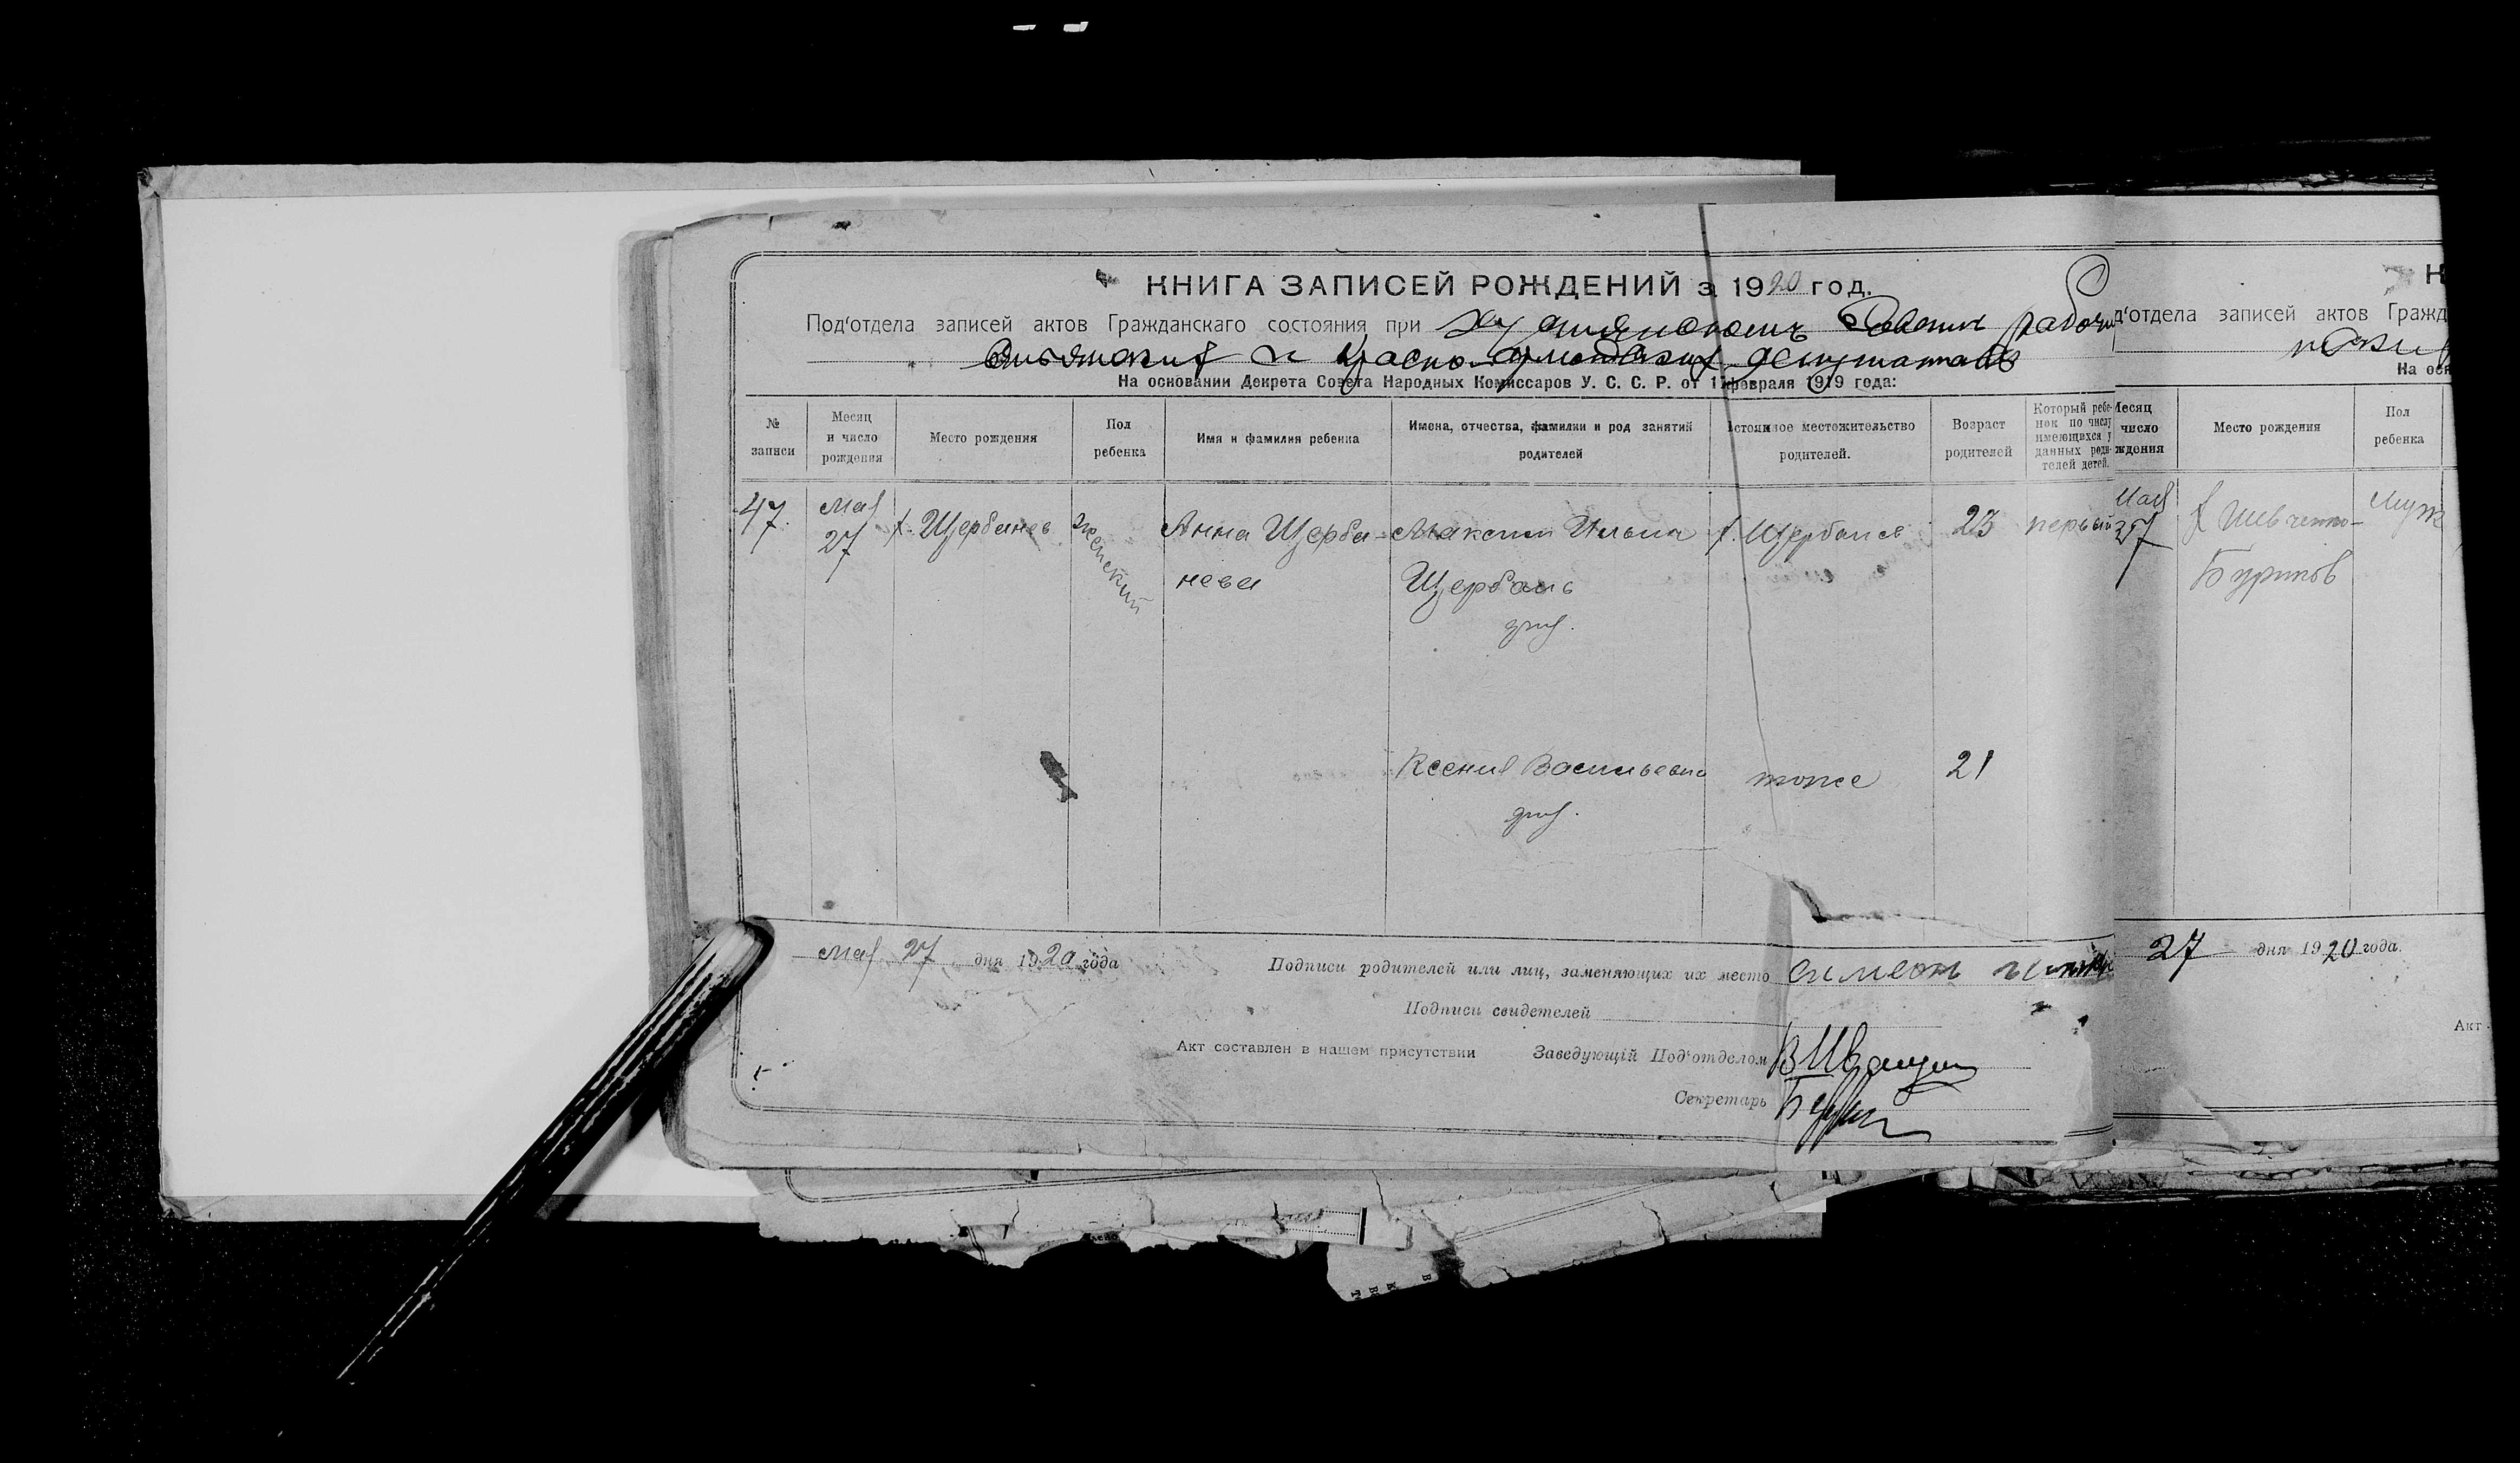 КНИГА ЗАПИСЕЙ РОЖДЕНИЙ з 1920 год.
Под'отдела записей актов Гражданскаго состояния при рабоч
и Красно-армейских депутатов
На основании Декрета Совета Народных Комиссаров У. С. С. Р. от 17 февраля 1919 года:
№ записи
Месяц и число рождения
Место рождения
Пол ребенка
Имя и фамилия ребенка
Имена, отчества, фамилии и род занятий родителей
местожительство родителей.
Возраст родителей
Который ребе-
нок по числу
имеющихся у
данных роди-
телей детей.
47.
Мая
27
х. Щербанев
женский
Анна Щерба-
нева
Максим Ильич
Щербань
х. Щербанев
23
первый
Ксения Васильевна
тоже
21
Мая 27 дня 1920 года
Подписи родителей или лиц, заменяющих их место
Подписи свидетелей
Акт составлен в нашем присутствии Заведующій Под'отделом
Секретарь
К
д'отдела записей актов Гражд
На осн
Месяц
число
ждения
Место рождения
Пол
ребенка
Мая
х Шевченко-
Муж
27 дня 1920 года.
Акт